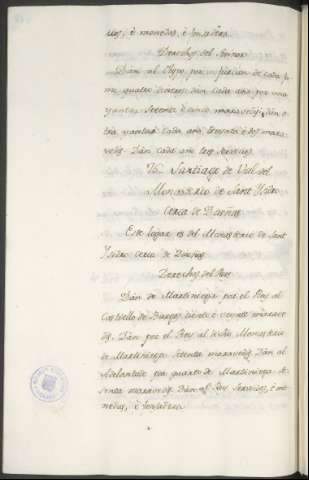 vos, è monedas, è fonsadera.
Derechos del Señor
Dán al Rey por cada
quatro dineros, dán cada año por una
yantar setenta è cinco maravedis, dán
cada año treynta è dos mara-
vedis. Dán cada año tres servicios.
Santiago de Val del
Monasterio de Sant Ysidro
cerca de Dueñas
Este logar es del Monasterio de Sant
Ysidro cerca de Dueñas
Derechos del Rey
Dán de Martiniega por el Rey al
Castiello de Burgos ciento è veynte marave-
dis. Dán por el Rey al dicho Monasterio
de Martiniega setenta maravedis. Dán al
Adelantado por quarto de Martiniega
senta maravedis. Dán al Rey servicios, è mo-
nedas, è fonsadera